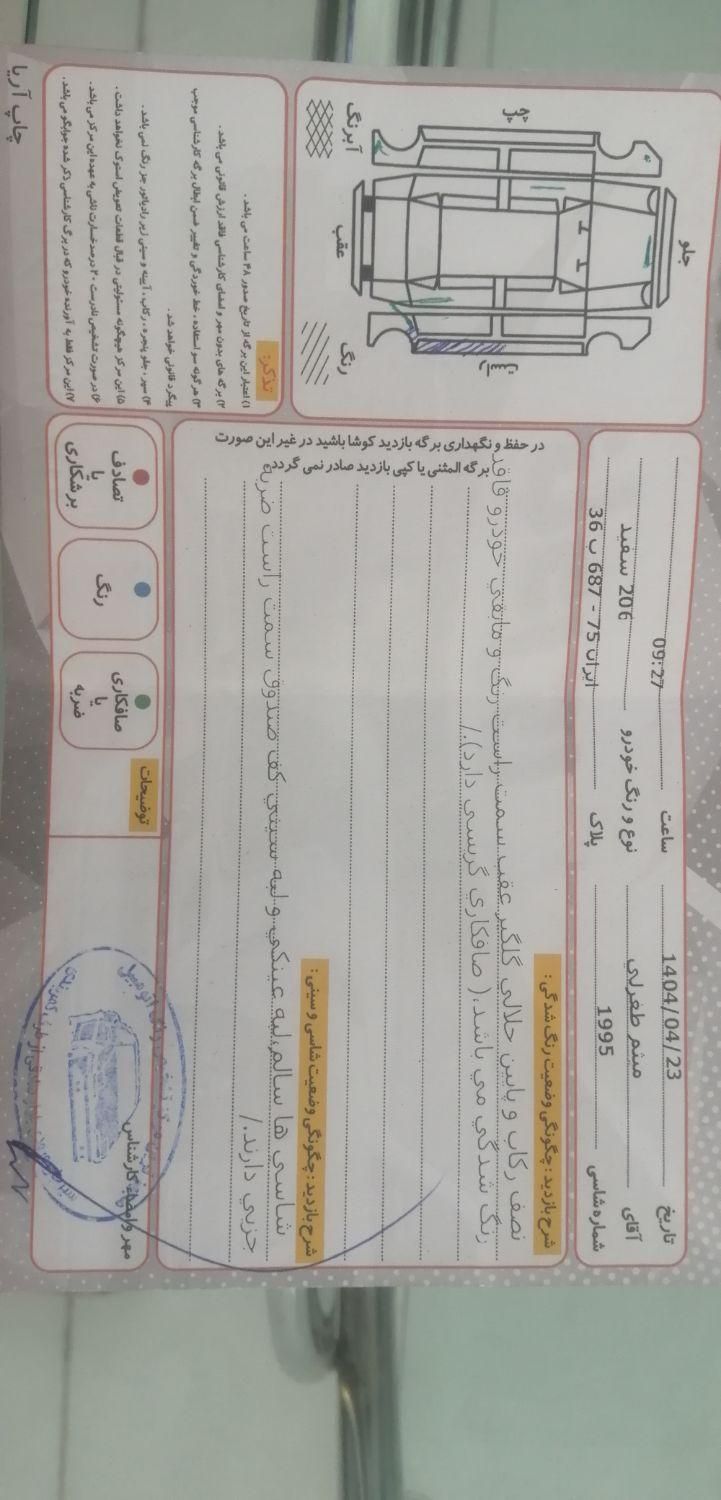 تاریخ 1404/04/23 ساعت 09:27
آقای میثم طغرلی نوع و رنگ خودرو 206 سفید
شماره شاسی 1995 پلاک ایران 75 - 687 ب 36
جلو
عقب
چپ
راست
آبرنگ
رنگ
شرح بازدید : چگونگی وضعیت رنگ شدگی :
در حفظ و نگهداری برگه بازدید کوشا باشید در غیر این صورت
برگه المثنی یا کپی بازدید صادر نمی گردد
نصف رکاب و پایین حلالی گلگیر عقب سمت راست رنگ و مابقی خودرو فاقد
رنگ شدگی می باشد.( صافکاری گریسی دارد)./
شرح بازدید : چگونگی وضعیت شاسی و سینی :
شاسی ها سالم،لبه عینکی و لبه سینی کف صندوق سمت راست ضربه
جزیی دارند./
تذکر:
۱) اعتبار این برگه از تاریخ صدور ۴۸ ساعت می باشد .
۲) برگه های بدون مهر و امضای کارشناسی فاقد ارزش قانونی می باشد .
۳) هر گونه سو استفاده ، خط خوردگی و تغییر ضمن ابطال برگه کارشناسی موجب
پیگرد قانونی خواهد شد .
۴) سپر ، جلو پنجره ، رکاب ، آیینه و سینی زیر رادیاتور جز رنگ نمی باشد .
۵) این مرکز هیچگونه مسئولیتی در قبال قطعات تعویض استوک نخواهد داشت .
۶) در صورت تشخیص نادرست ۳۰ درصد خسارت ناشی به عهده این مرکز می باشد .
۷) این مرکز فقط به آورنده خودرو که در برگ کارشناسی ذکر شده جوابگو می باشد .
تصادف
یا
برشکاری
رنگ
صافکاری
یا
ضربه
توضیحات
مهر و امضاء کارشناس
چاپ آریا